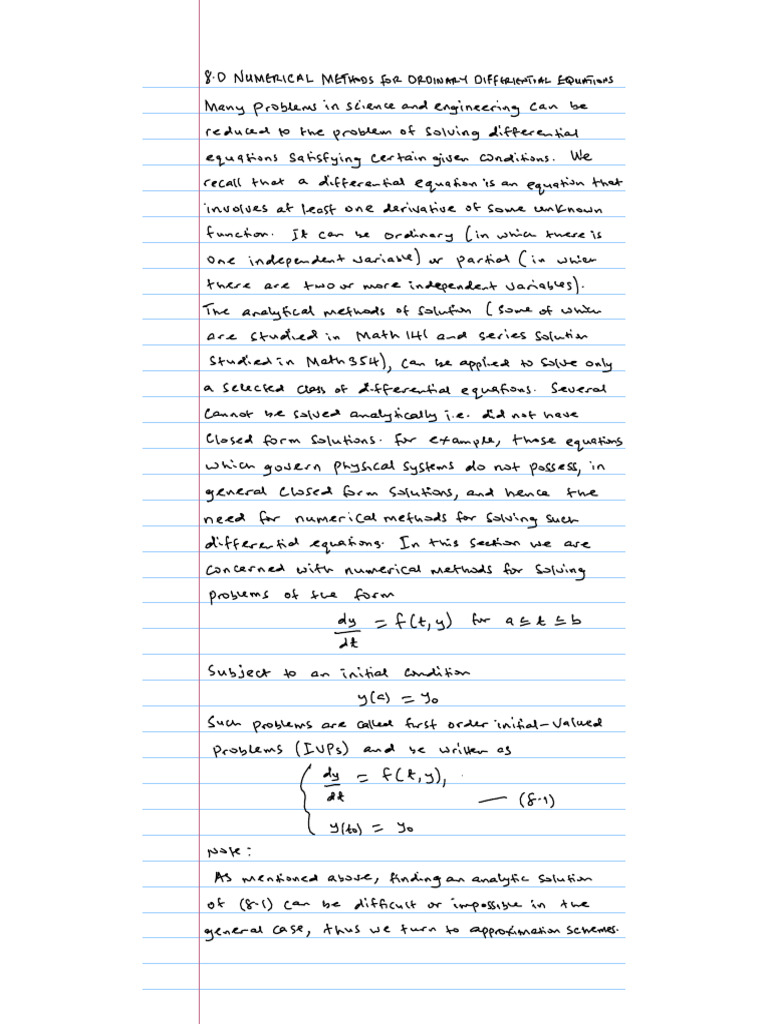 8.0 NUMERICAL METHODS FOR ORDINARY DIFFERENTIAL EQUATIONS
Many problems in science and engineering can be
reduced to the problem of solving differential
equations satisfying certain given conditions. We
recall that a differential equation is an equation that
involves at least one derivative of some unknown
function. It can be ordinary (in which there is
one independent variable) or partial (in which
there are two or more independent variables).
The analytical methods of solution (some of which
are studied in Math 141 and series solution
studied in Math 354), can be applied to solve only
a selected class of differential equations. Several
cannot be solved analytically i.e. did not have
closed form solutions. For example, those equations
which govern physical systems do not possess, in
general closed form solutions, and hence the
need for numerical methods for solving such
differential equations. In this section we are
concerned with numerical methods for solving
problems of the form
dy/dt = f(t, y) for a ≤ t ≤ b
Subject to an initial condition
y(a) = y₀
Such problems are called first order initial-valued
problems (IVPs) and be written as
dy/dt = f(t, y),
— (8.1)
y(t₀) = y₀
Note:
As mentioned above, finding an analytic solution
of (8.1) can be difficult or impossible in the
general case, thus we turn to approximation schemes.